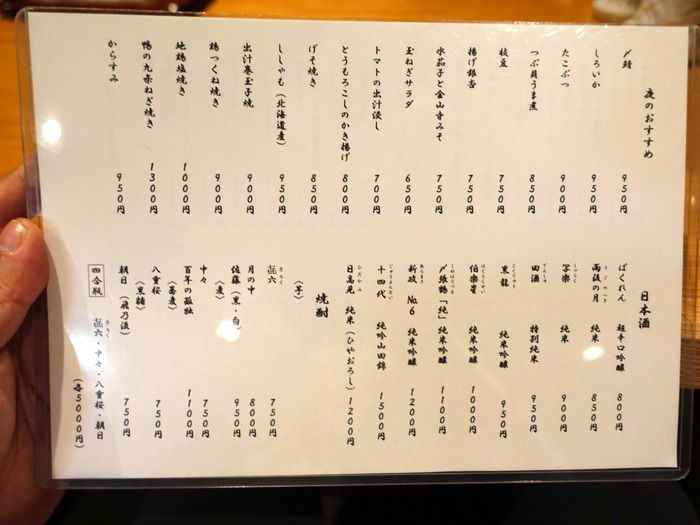 夜のおすすめ
〆鯖 950円
しろいか 950円
たこぶつ 900円
つぶ貝うま煮 850円
枝豆 500円
揚げ銀杏 750円
水茄子と金山寺みそ 750円
玉ねぎサラダ 650円
トマトの出汁浸し 700円
とうもろこしのかき揚げ 800円
げそ焼き 850円
ししゃも（北海道産） 950円
出汁巻玉子焼 900円
鶏つくね焼き 900円
地鶏塩焼き 1000円
鴨の九条ねぎ焼き 1300円
からすみ 950円
日本酒
ばくれん 超辛口吟醸 800円
雨後の月 純米 850円
うごのつき
写楽 純米 900円
しゃらく
田酒 特別純米 950円
でんしゅ
黒龍 純米吟醸 950円
こくりゅう
伯楽星 純米吟醸 1000円
はくらくせい
〆張鶴「純」 純米吟醸 1100円
しめはりつる
新政 No.6 純米吟醸 1200円
あらまさ
十四代 純吟山田錦 1500円
じゅうよんだい
日高見 純米（ひやおろし） 1200円
ひだかみ
焼酎
（芋）
㐂六 750円
きろく
月の中 800円
佐藤（黒・白） 950円
（麦）
中々 750円
百年の孤独 1100円
（蕎麦）
八重桜 750円
（黒糖）
朝日（飛乃流） 750円
四合瓶 㐂六・中々・八重桜・朝日
きろく
（各5000円）